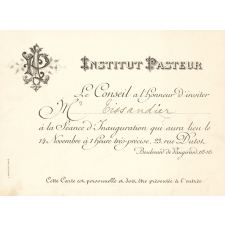 IP
INSTITUT PASTEUR
Le Conseil a l'honneur d'inviter
Mr Tissandier
à la Séance d'Inauguration qui aura lieu le
14 Novembre à 1 heure très précise, 25 rue Dutot.
Boulevard de Vaugirard
Cette Carte est personnelle et doit être présentée à l'entrée.